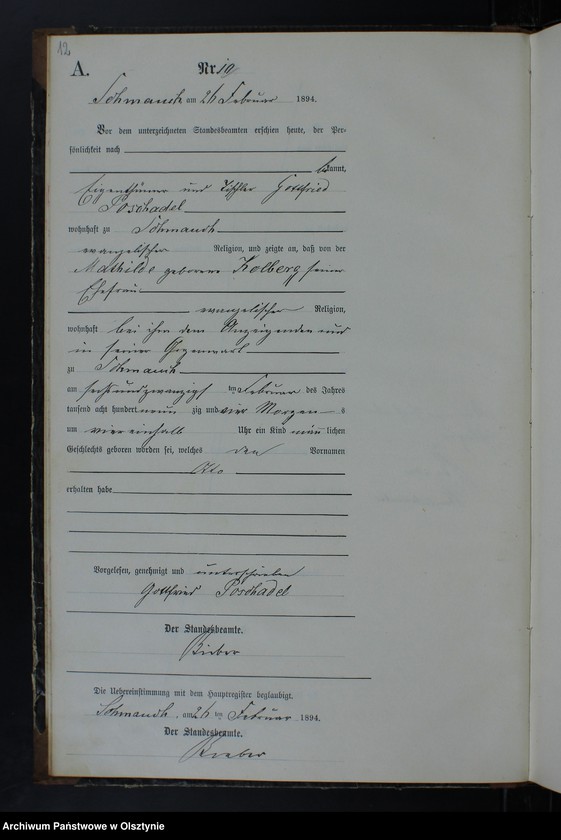 12
A.
Nr. 10
Sohmauch am 26 Februar 1894.
Vor dem unterzeichneten Standesbeamten erschien heute, der Per-
sönlichkeit nach
kannt,
Eigenthümer und Tischler Gottfried
Poschadel
wohnhaft zu
evangelischer Religion, und zeigte an, daß von der
Mathilde geborene Kolberg seiner
Ehefrau
evangelischer Religion,
wohnhaft bei ihm dem Anzeigenden und
in seiner Gegenwart
zu
am sechsundzwanzigsten Februar des Jahres
tausend acht hundert neun zig und vier Morgen s
um viereinhalb Uhr ein Kind männlichen
Geschlechts geboren worden sei, welches den Vornamen
Otto
erhalten habe
Vorgelesen, genehmigt und unterschrieben
Gottfried Poschadel
Der Standesbeamte.
Bieber
Die Uebereinstimmung mit dem Hauptregister beglaubigt.
am 26 ten Februar 1894.
Der Standesbeamte.
Bieber
Archiwum Państwowe w Olsztynie